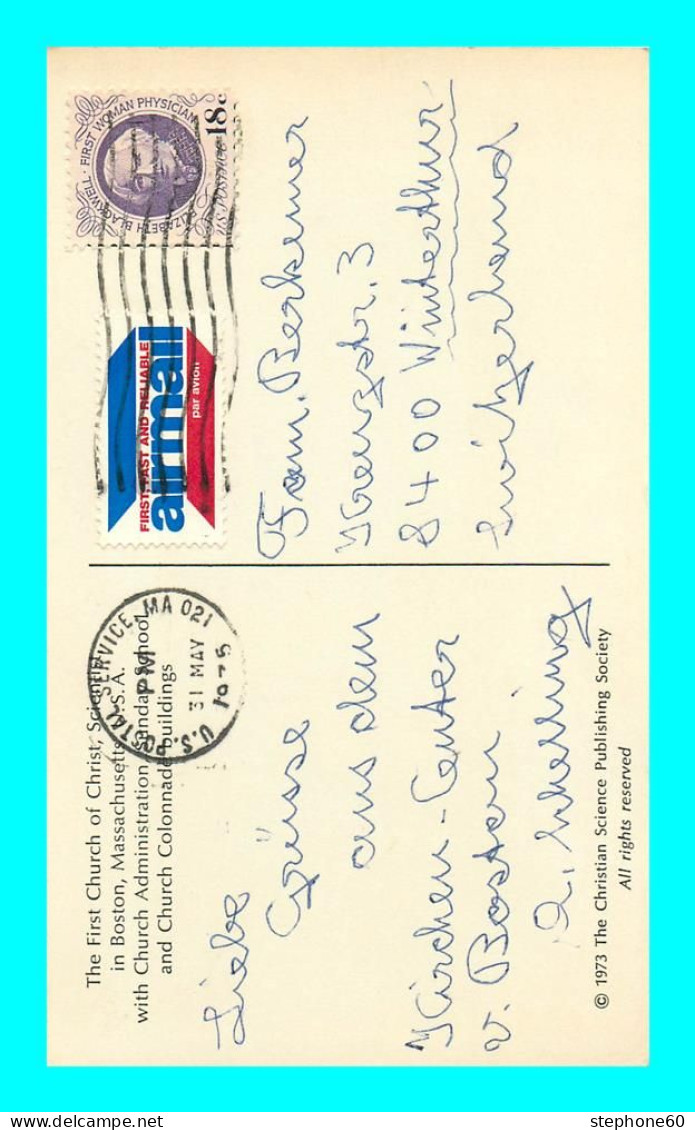 The First Church of Christ, Scientist
in Boston, Massachusetts, U.S.A.
with Church Administration, Sunday School,
and Church Colonnade buildings
U.S. POSTAL SERVICE, MA 021
PM
31 MAY
1975
Liebe
Grüsse
aus dem
Kirchen-Center
v. Boston
© 1973 The Christian Science Publishing Society
All rights reserved
ELIZABETH BLACKWELL · FIRST WOMAN PHYSICIAN
18c
U.S. POSTAGE
FIRST, FAST AND RELIABLE
airmail
par avion
Fam. Berkemer
3
8400 Winterthur
Switzerland
stephone60